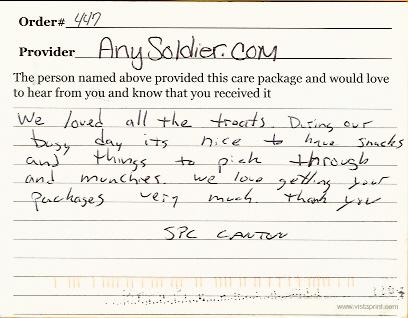 Order# 447
Provider AnySoldier.COM
The person named above provided this care package and would love
to hear from you and know that you received it
We loved all the treats. During our
busy day its nice to have snacks
and things to pick through
and munchies. We love getting your
packages very much. thank you
SPC
www.vistaprint.com